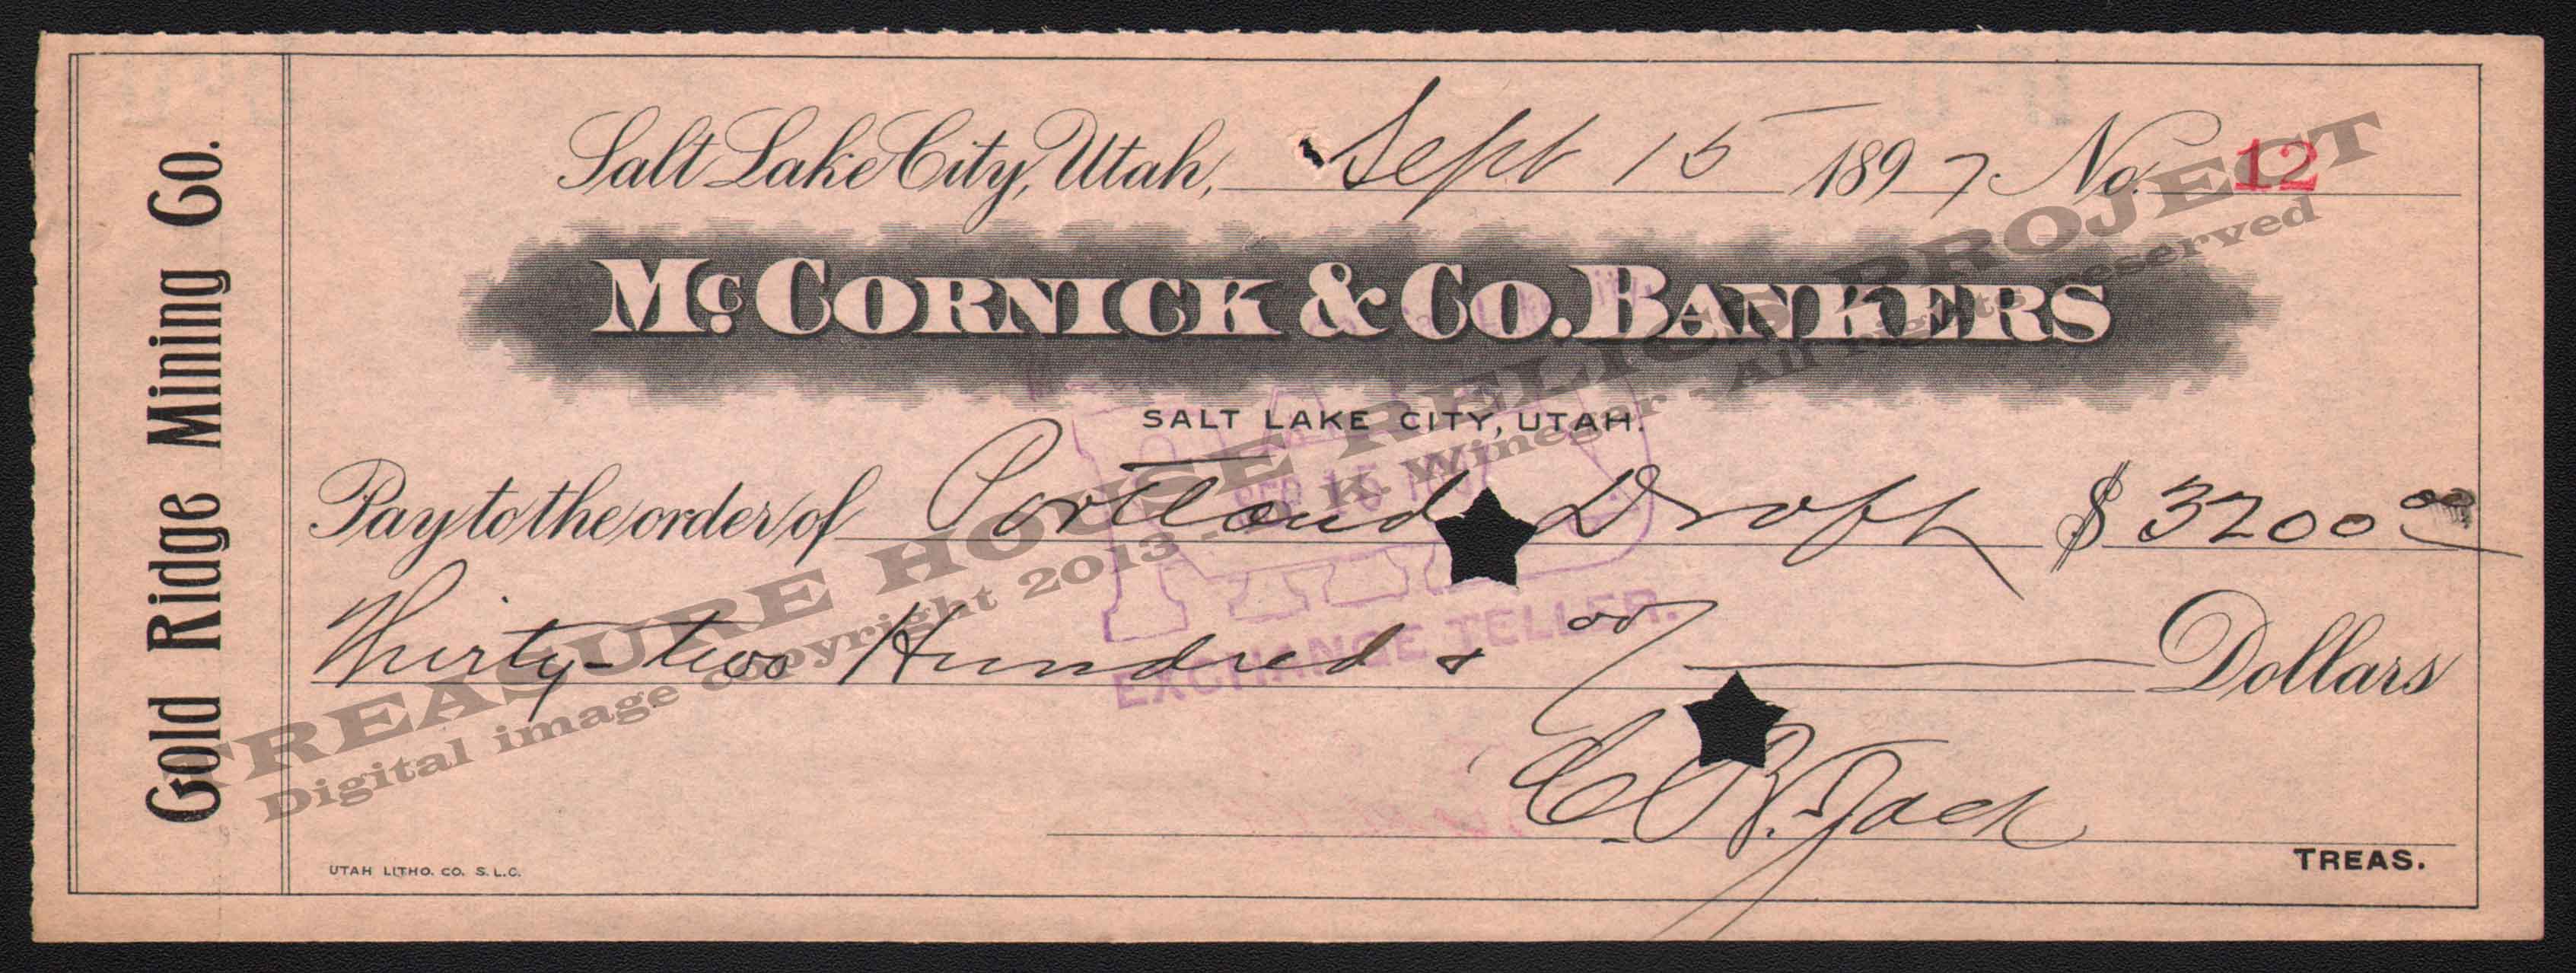 Gold Ridge Mining Co.
Salt Lake City, Utah, Sept 15 1897 No. 12
McCORNICK & CO. BANKERS
SALT LAKE CITY, UTAH.
Pay to the order of Portland Draft $3200 00
Thirty-two Hundred & 00/ Dollars
C. R. Jack
TREAS.
UTAH LITHO. CO. S.L.C.
PAID
SEP 15 1897
EXCHANGE TELLER.
TREASURE HOUSE RELICS PROJECT
Digital image copyright 2013 - K Winegar - All rights reserved